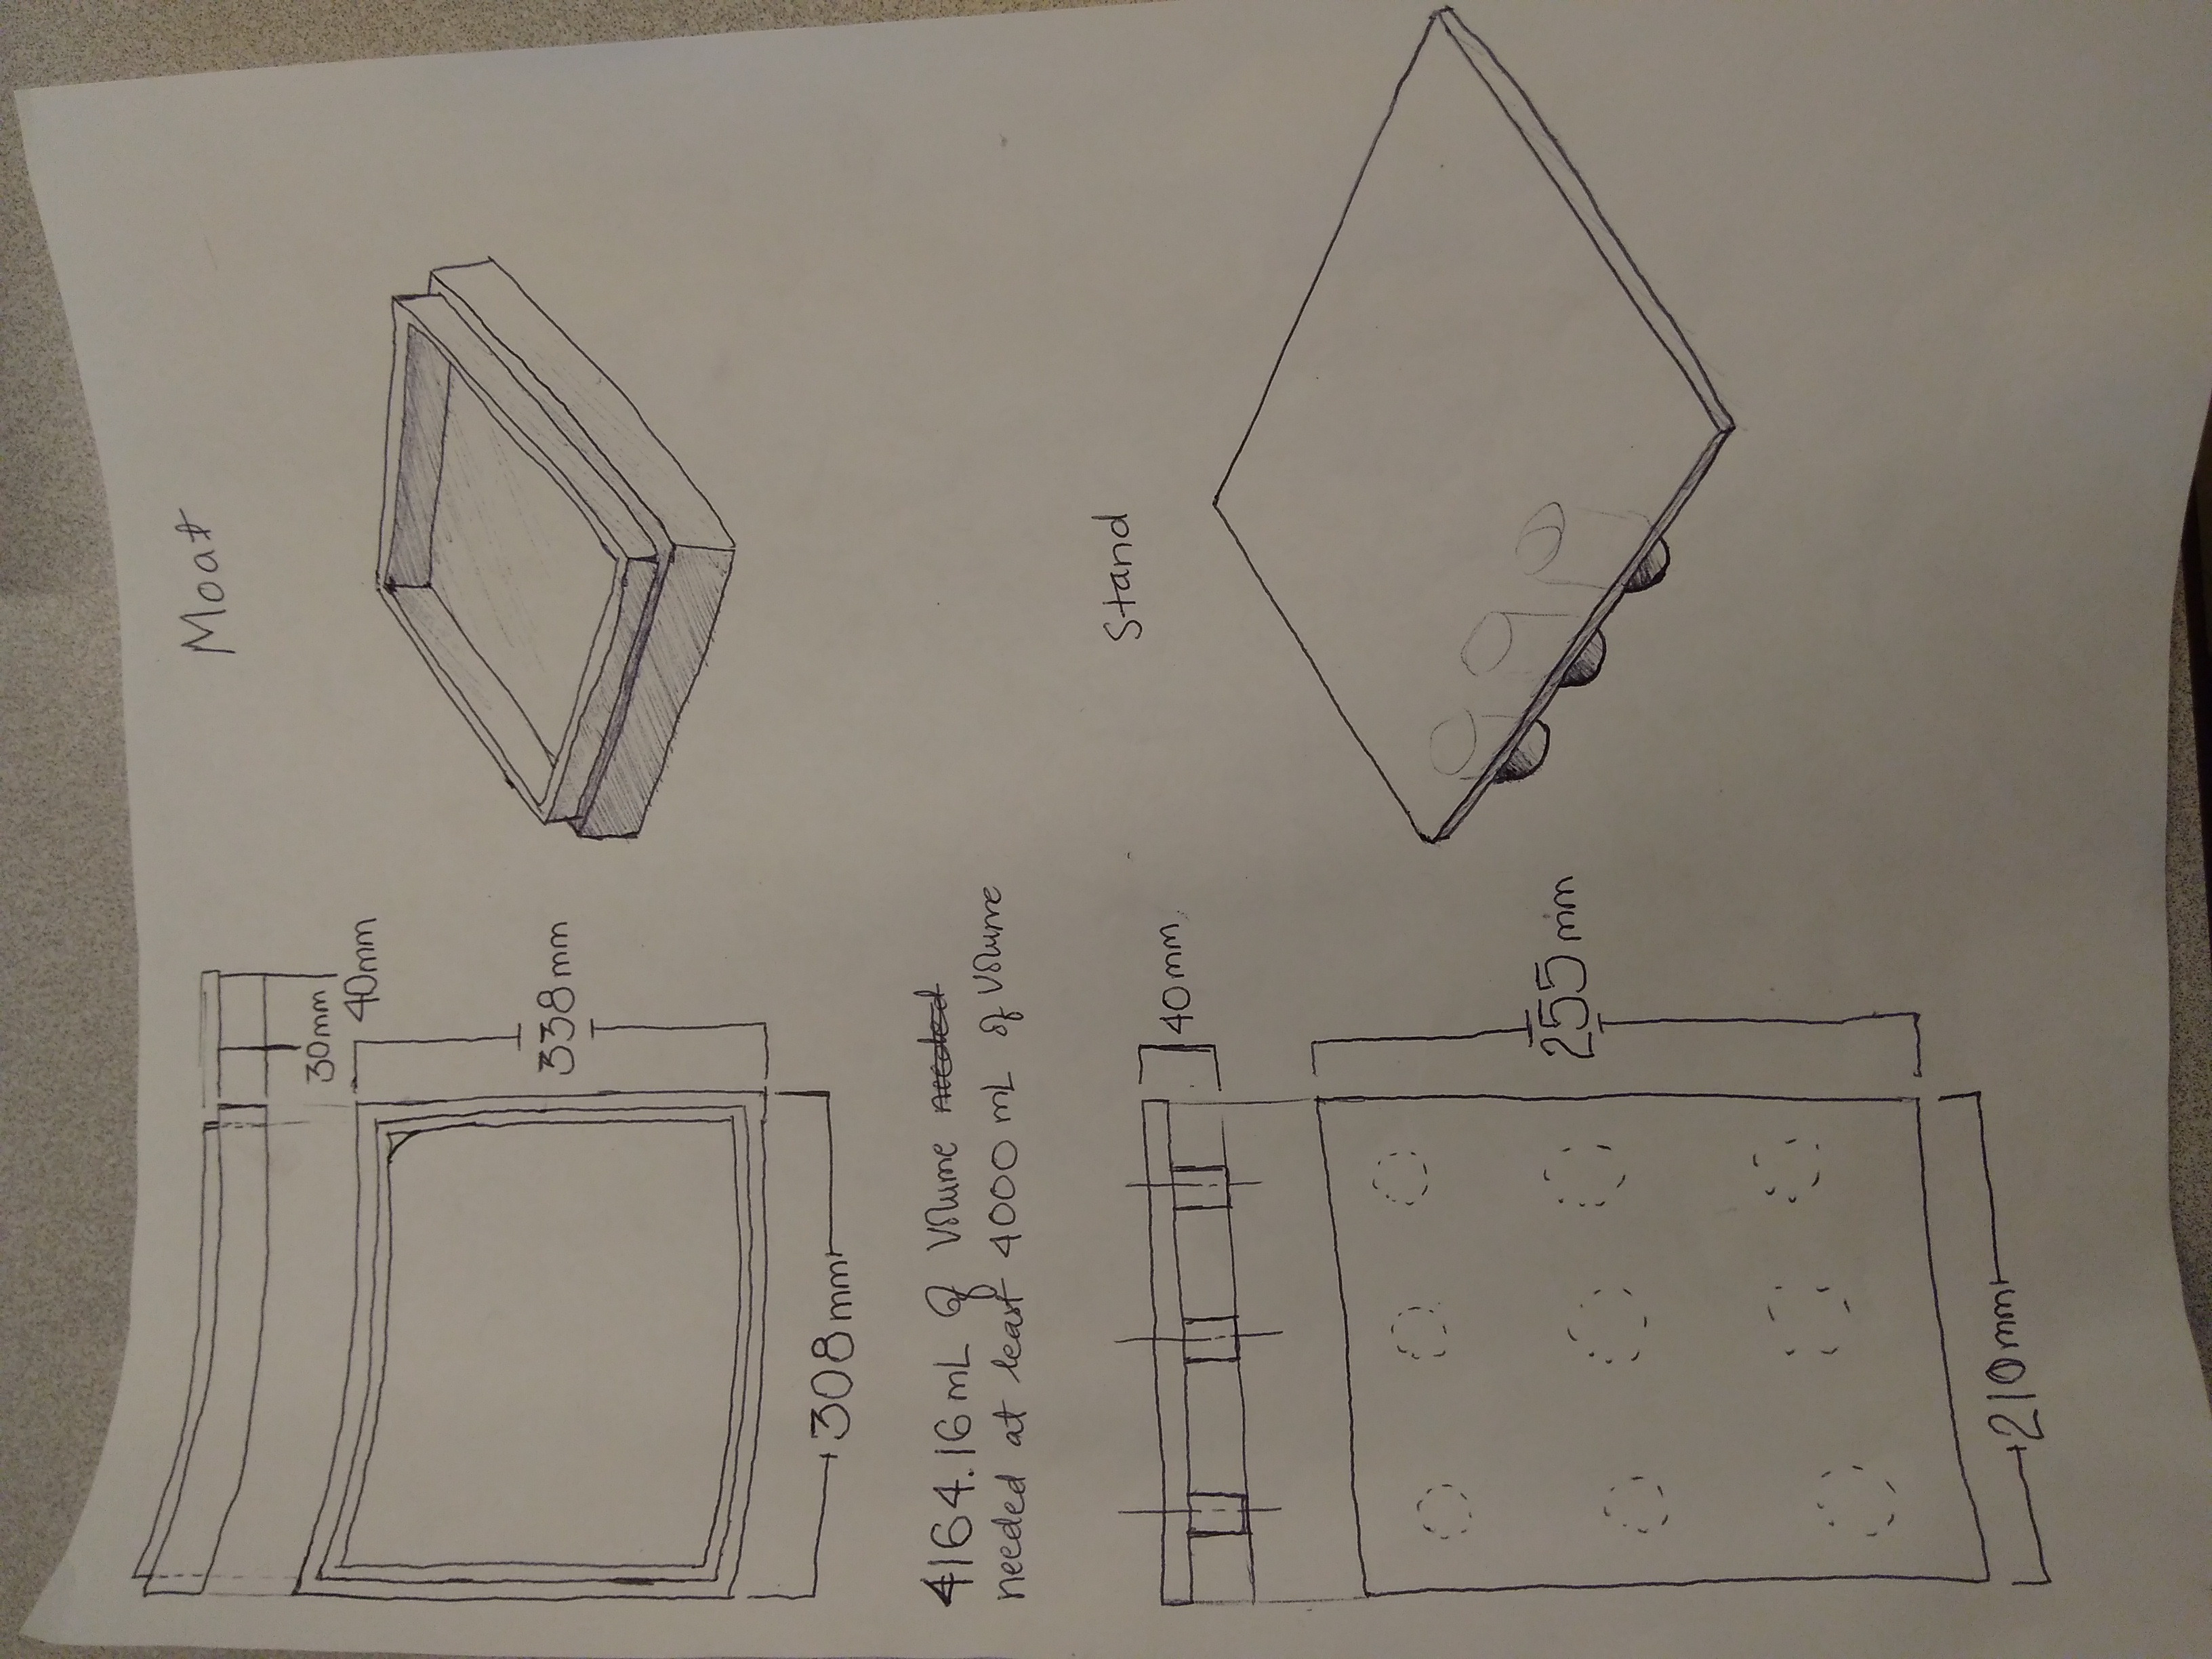 Moat
30mm
40mm
338mm
308mm
4164.16 mL of Volume needed
needed at least 4000 mL of Volume
Stand
40mm
255mm
210mm